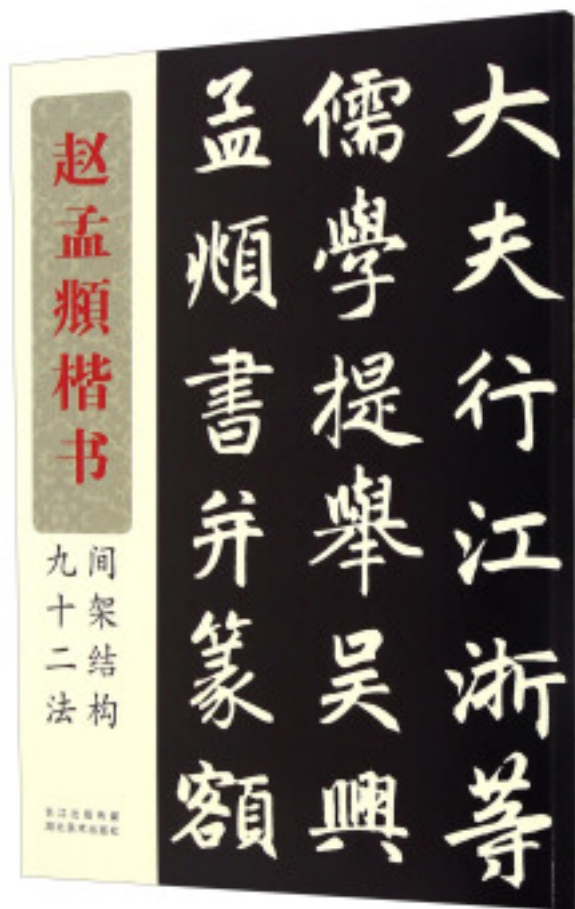 赵孟頫楷书
间架结构
九十二法
长江出版传媒
湖北美术出版社
大夫行江浙等
儒學提舉吴興
孟頫書并篆額